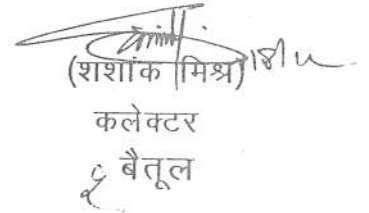 (शशांक मिश्र)
कलेक्टर
बैतूल